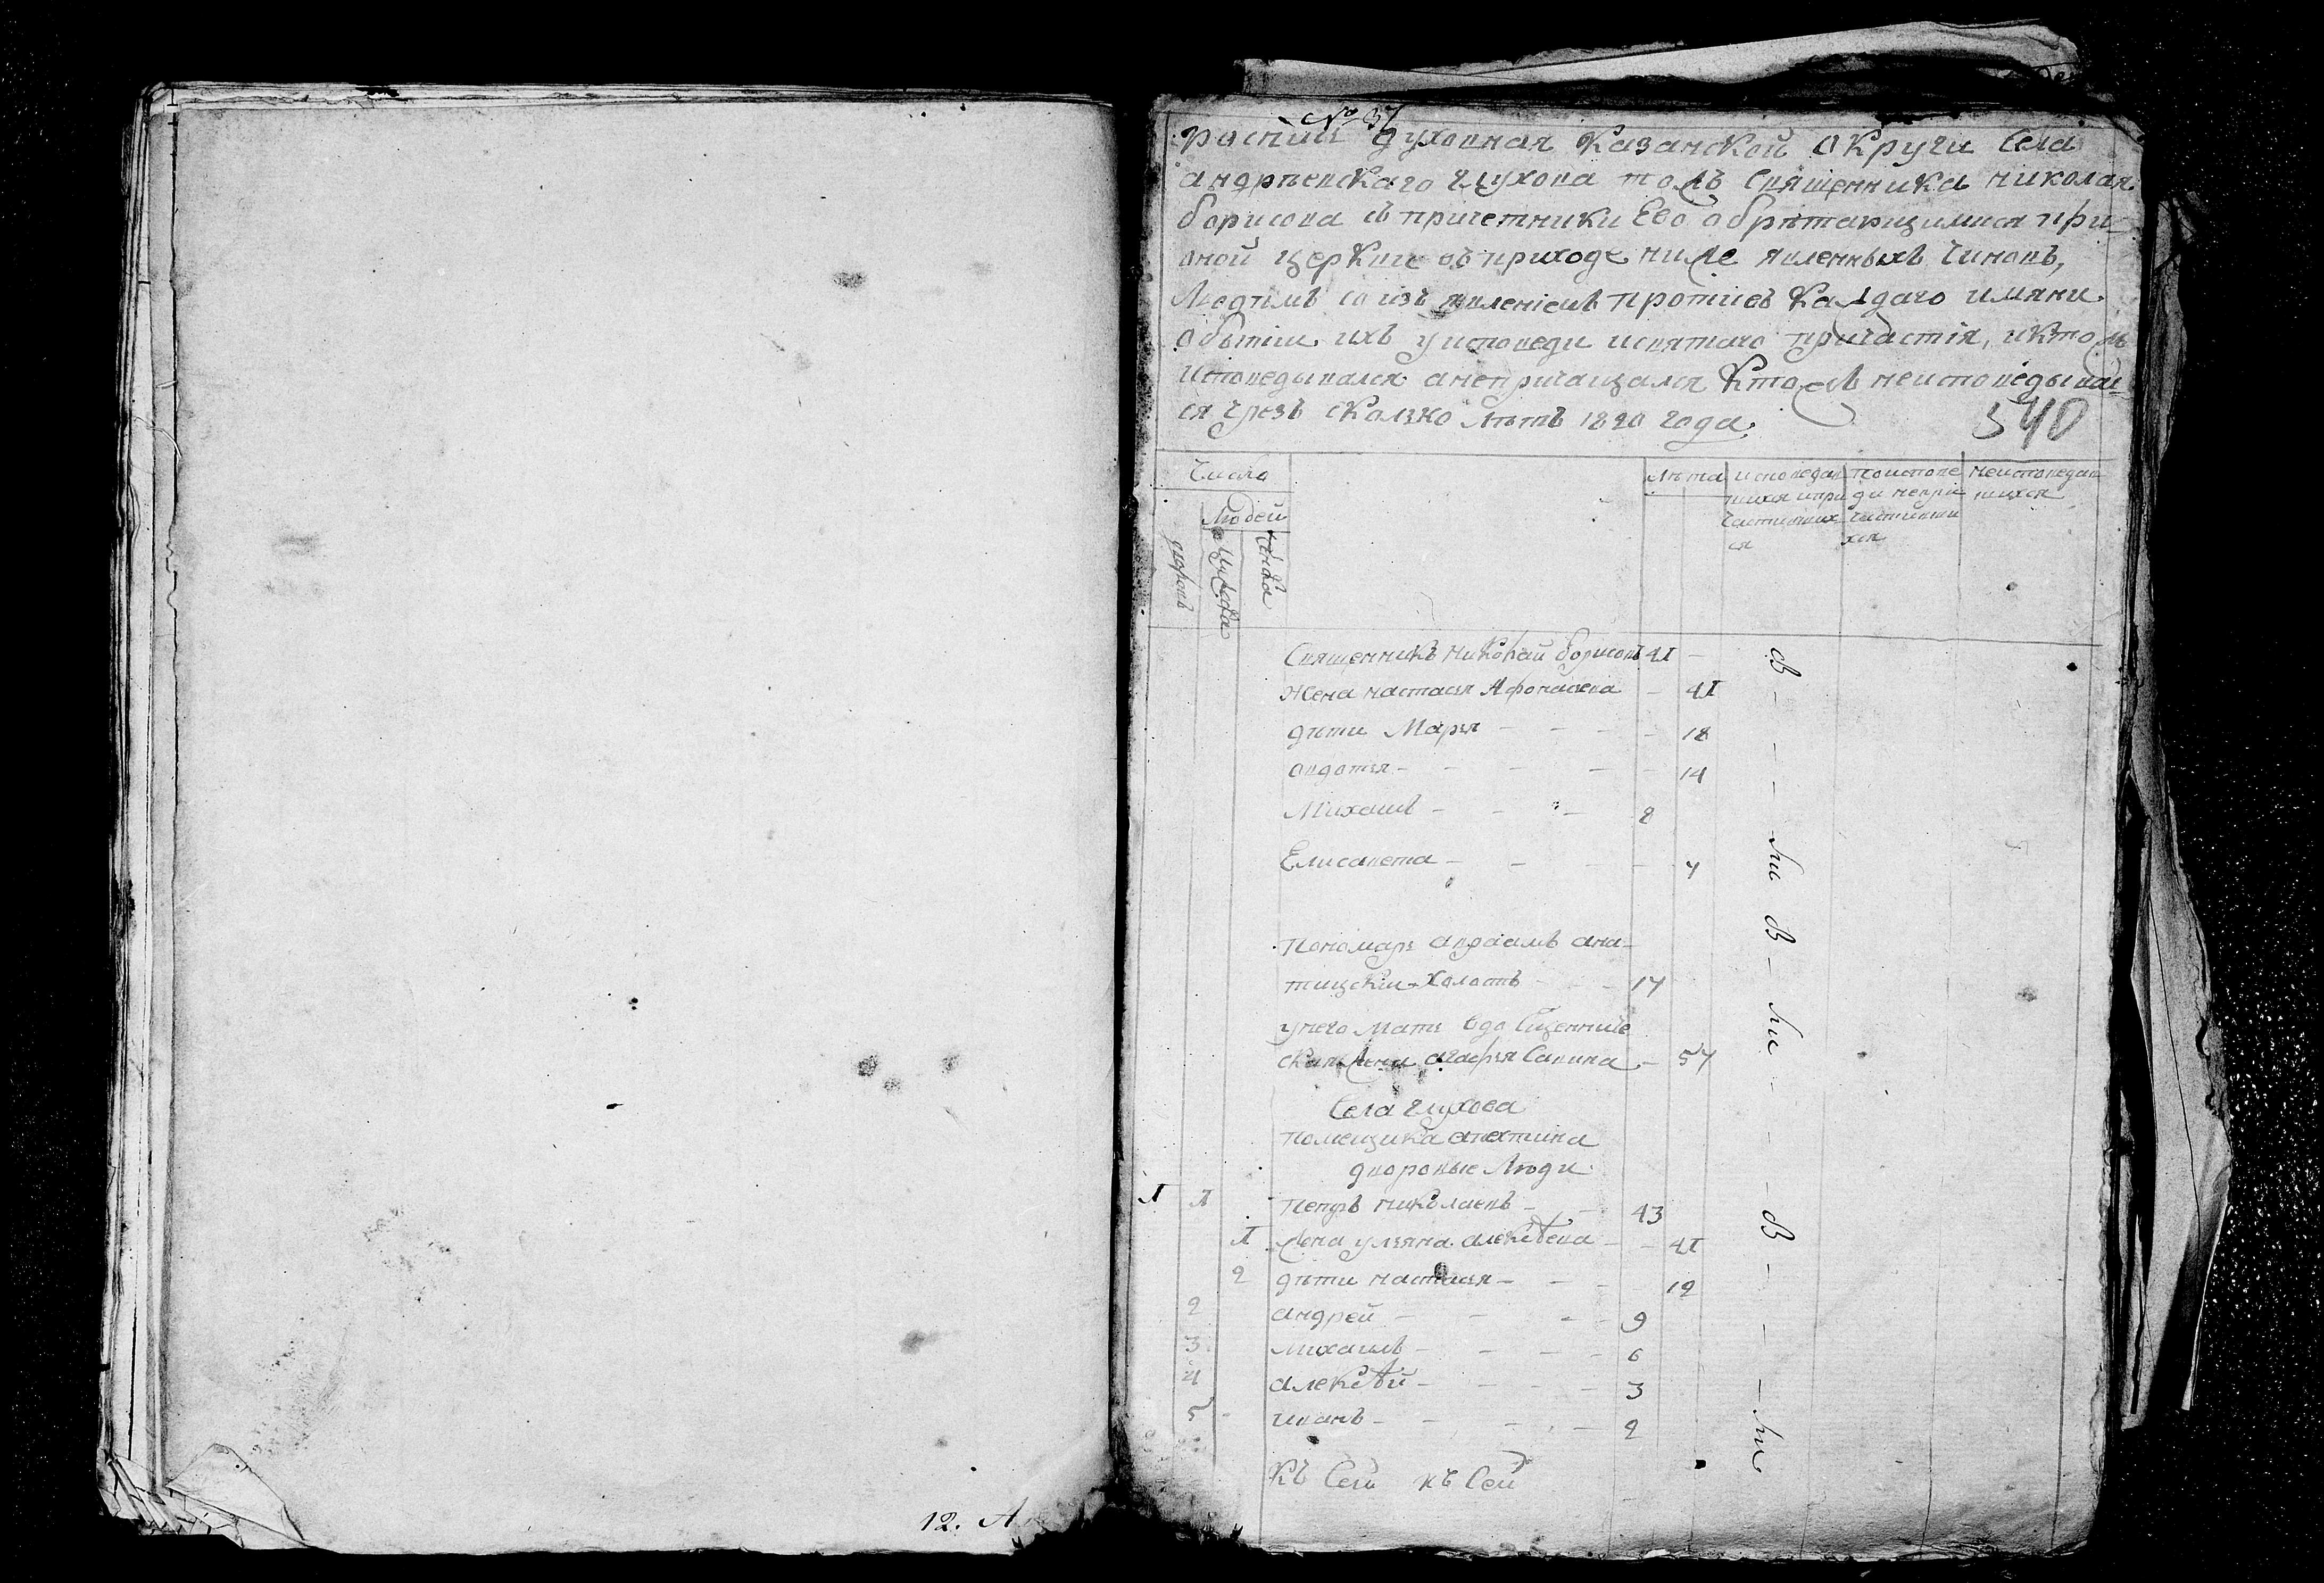 12. А
№ 37
роспись духовная казанской округи села
андрѣевскаго глухова тожъ священника николая
борисова съ причетники Ево обрѣтающимися при-
оной церкви въ приходе ниже явленныхъ чиновъ,
Людемъ со изъявленіемъ противъ каждаго имяни
о бытіи ихъ у исповеди и святаго причастія, и кто ж
исповедывался а непричащался кто жъ неисповедывал-
ся чрезъ сколько лѣтъ 1820 года
340
Число
Лѣта
исповедав
шихся и при
частивших
ся
по испове
ди непри
частивши
хся
неисповедав
шихся
Людей
дворовъ
мужеска
женска
Священникъ николай борисовъ 41 -
Жена настасья Афонасьева - 41
дѣти Марья - - - - 18
овдотья - - - - - 14
Михаилъ - - - 8
Елисавета - - - - 7
пономарь авраамъ ана-
тицкіи холостъ - - - 17
у него мать вдо сщенниче
ская жена агафья савина - 57
Села глухова
помещика апехтина
дворовые Люди
1 1 петръ николаевъ - - 43
1 Жена ульяна алексѣева - - 41
2 дѣти настасья - - - 12
2 андрей - - - - 9
3 михаилъ - - - - 6
4 алексѣй - - - - 3
5 иванъ - - - - 2
къ Сей къ Сей